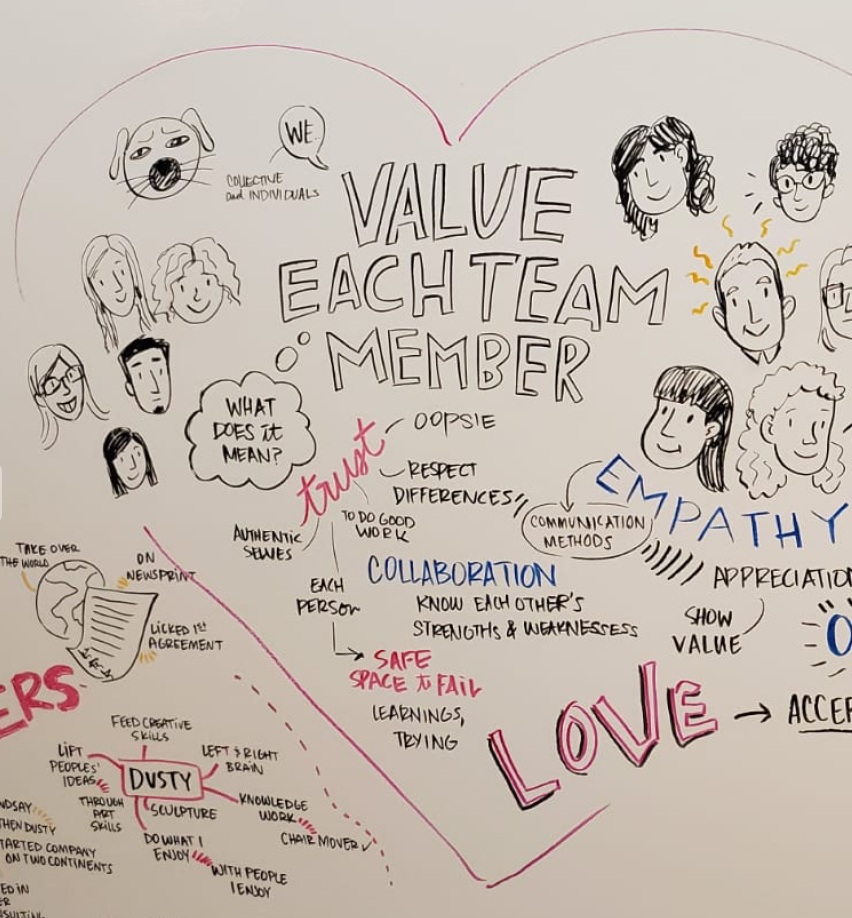 WE
COLLECTIVE
and INDIVIDUALS
VALUE
EACH TEAM
MEMBER
WHAT
DOES it
MEAN?
trust
OOPSIE
RESPECT
DIFFERENCES
TO DO GOOD
WORK
AUTHENTIC
SELVES
EACH
PERSON
SAFE
SPACE to FAIL
LEARNINGS,
TRYING
COLLABORATION
KNOW EACH OTHER'S
STRENGTHS & WEAKNESSESS
COMMUNICATION
METHODS
EMPATHY
APPRECIATION
SHOW
VALUE
"O
LOVE → ACCEP
TAKE OVER
THE WORLD
ON
NEWSPRINT
LICKED 1st
AGREEMENT
ERS
DUSTY
FEED CREATIVE
SKILLS
LIFT
PEOPLES'
IDEAS
THROUGH
ART
SKILLS
LEFT & RIGHT
BRAIN
SCULPTURE
KNOWLEDGE
WORK
CHAIR MOVER
DO WHAT I
ENJOY
WITH PEOPLE
I ENJOY
NDSAY
THEN DUSTY
TARTED COMPANY
ON TWO CONTINENTS
ED IN
ER
NSULTING